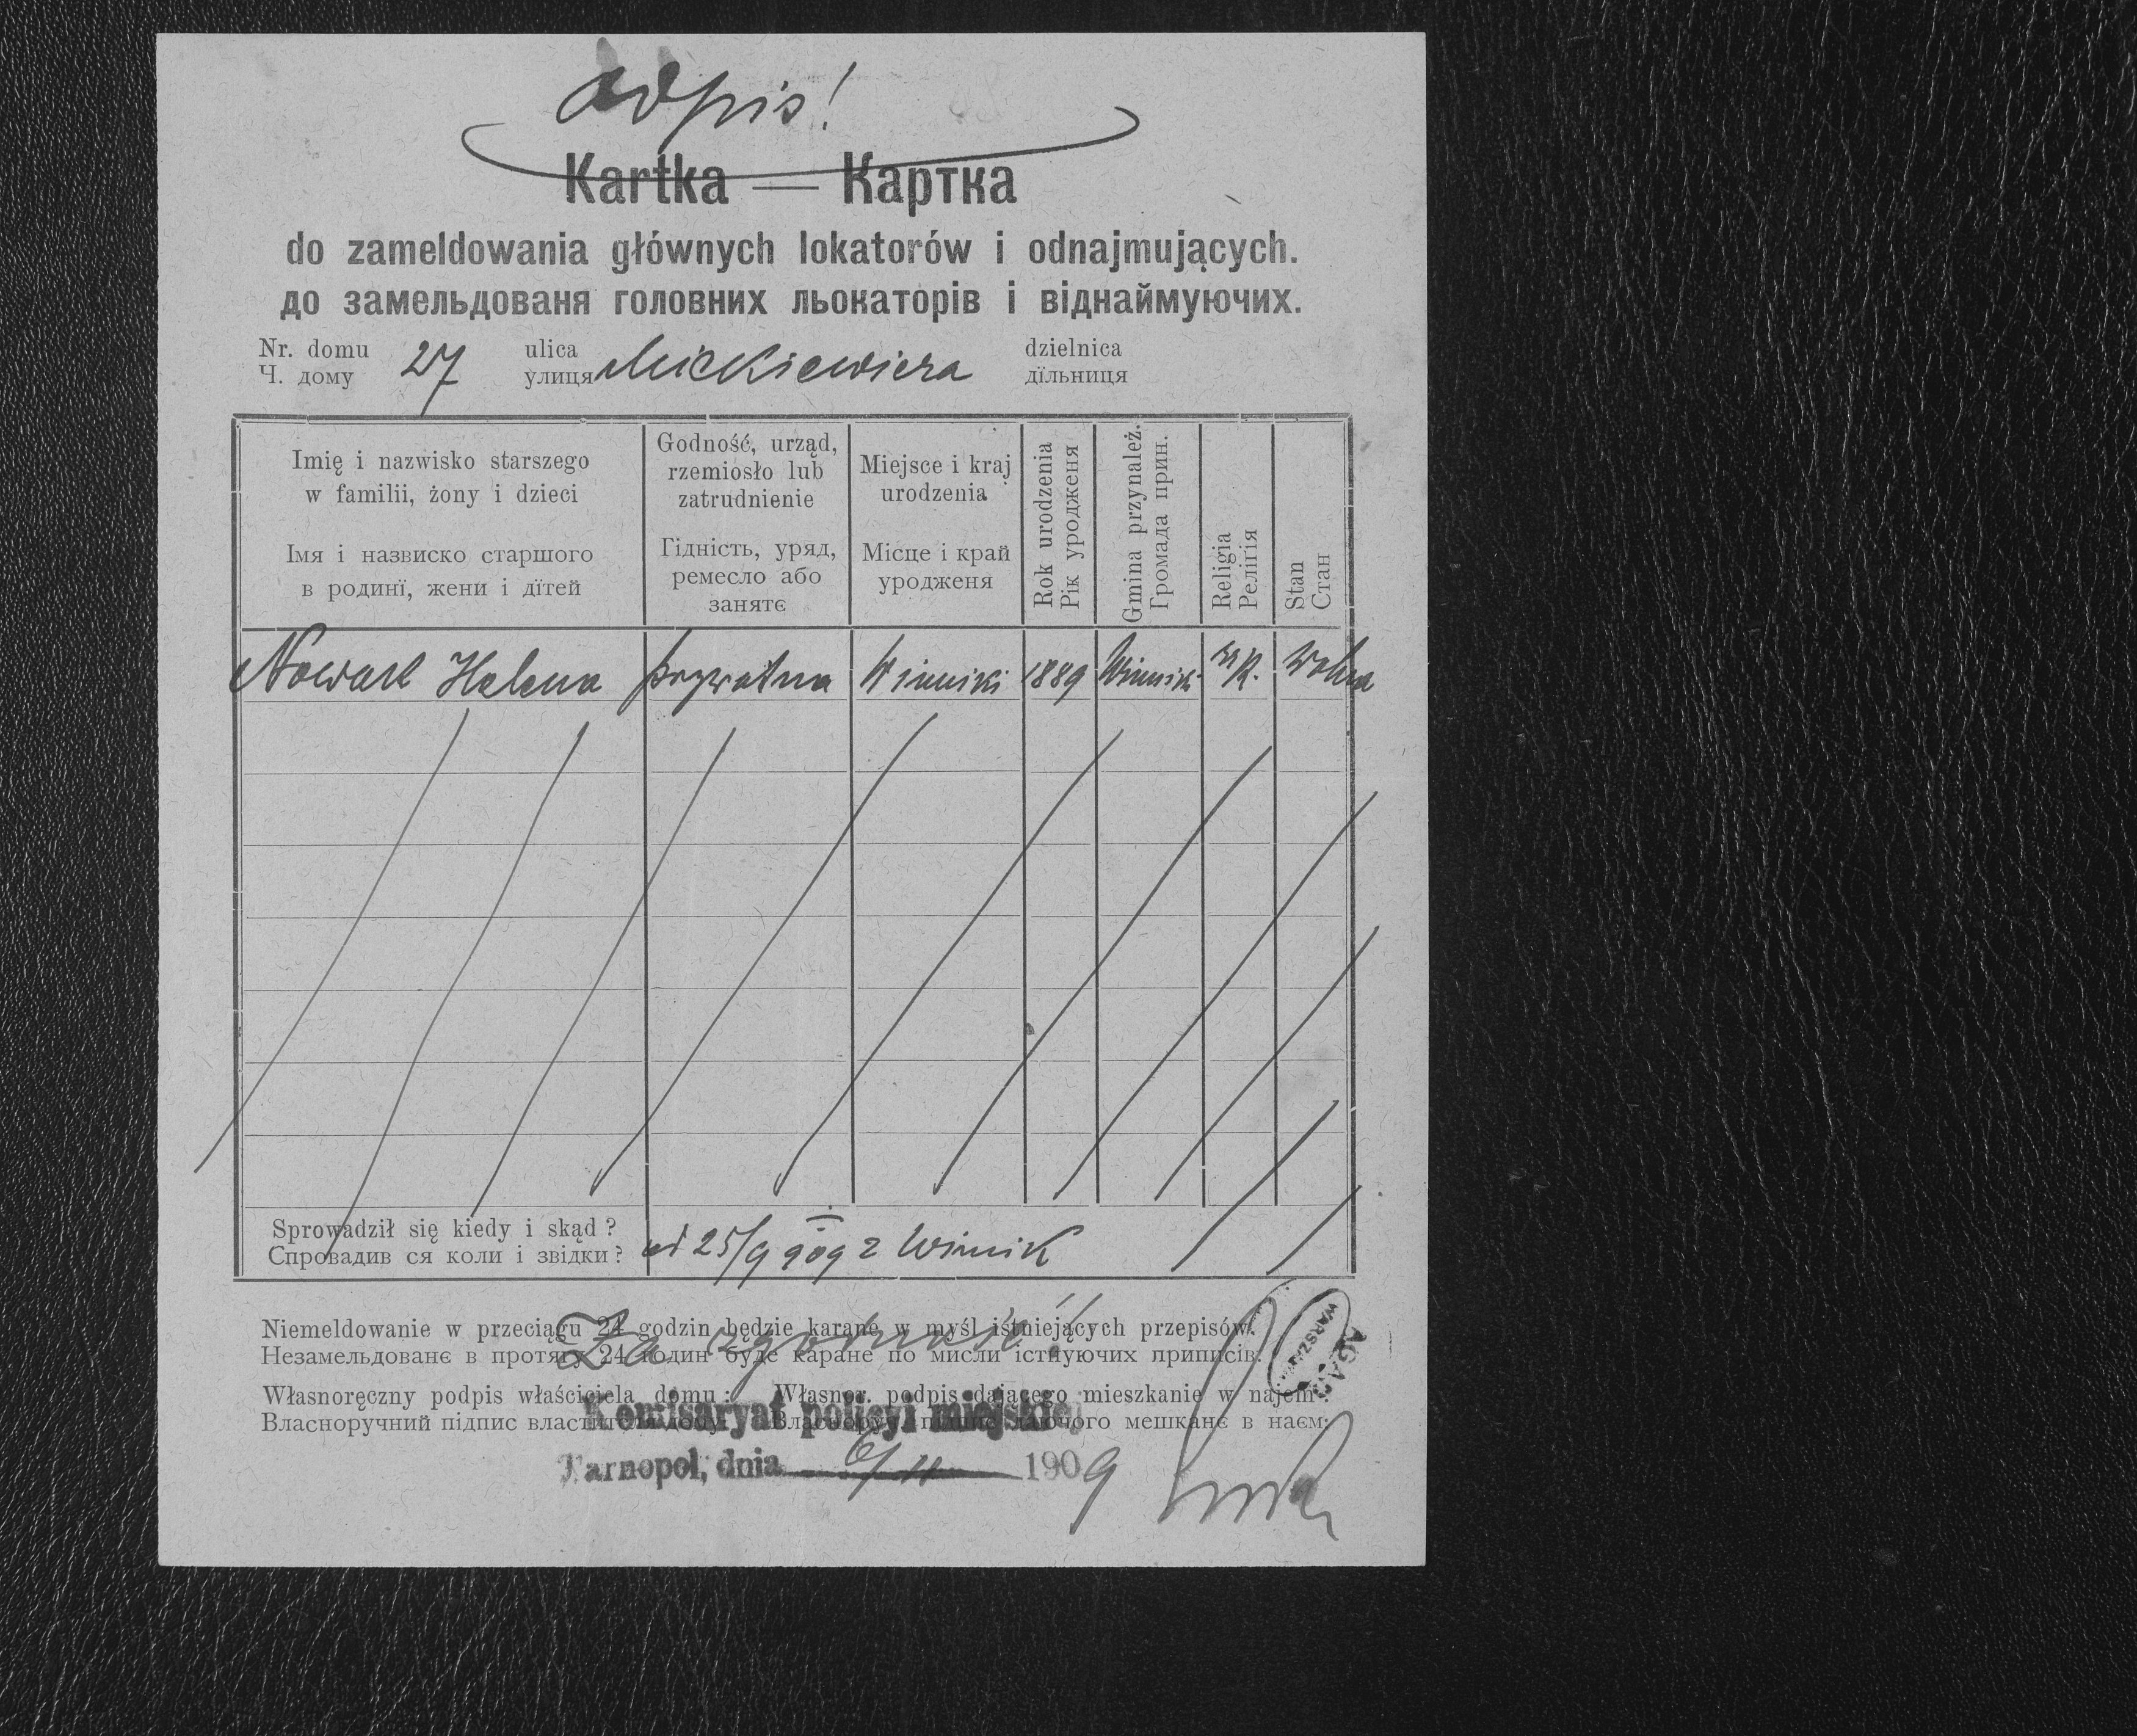 Odpis!
Kartka — Картка
do zameldowania głównych lokatorów i odnajmujących.
до замельдованя головних льокаторів і віднаймуючих.
Nr. domu 27 ulica Mickiewicza dzielnica
Ч. дому улиця дїльниця
Imię i nazwisko starszego
w familii, żony i dzieci
Імя і назвиско старшого
в родинї, жени і дїтей
Godność, urząd,
rzemiosło lub
zatrudnienie
Гідність, уряд,
ремесло або
занятє
Miejsce i kraj
urodzenia
Місце і край
уродженя
Rok urodzenia
Рік уродженя
Gmina przynależ.
Громада прин.
Religia
Релігія
Stan
Стан
Nowak Helena prywatna Winniki 1889 Winniki rz k. wolna
Sprowadził się kiedy i skąd?
Спровадив ся коли і звідки?
od 25/9 909 z Winnik
Niemeldowanie w przeciągu 24 godzin będzie karane w myśl istniejących przepisów.
Незамельдованє в протягу 24 годин буде каране по мисли істнуючих приписів.
Za zgodność!
Własnoręczny podpis właściciela domu: Własnor. podpis dającego mieszkanie w najem:
Власноручний підпис властителя дому: Власноруч. підпис даючого мешканє в наєм:
Komisaryat policyi miejskiej
Tarnopol, dnia 6/11 1909
AGAD
WARSZAWA